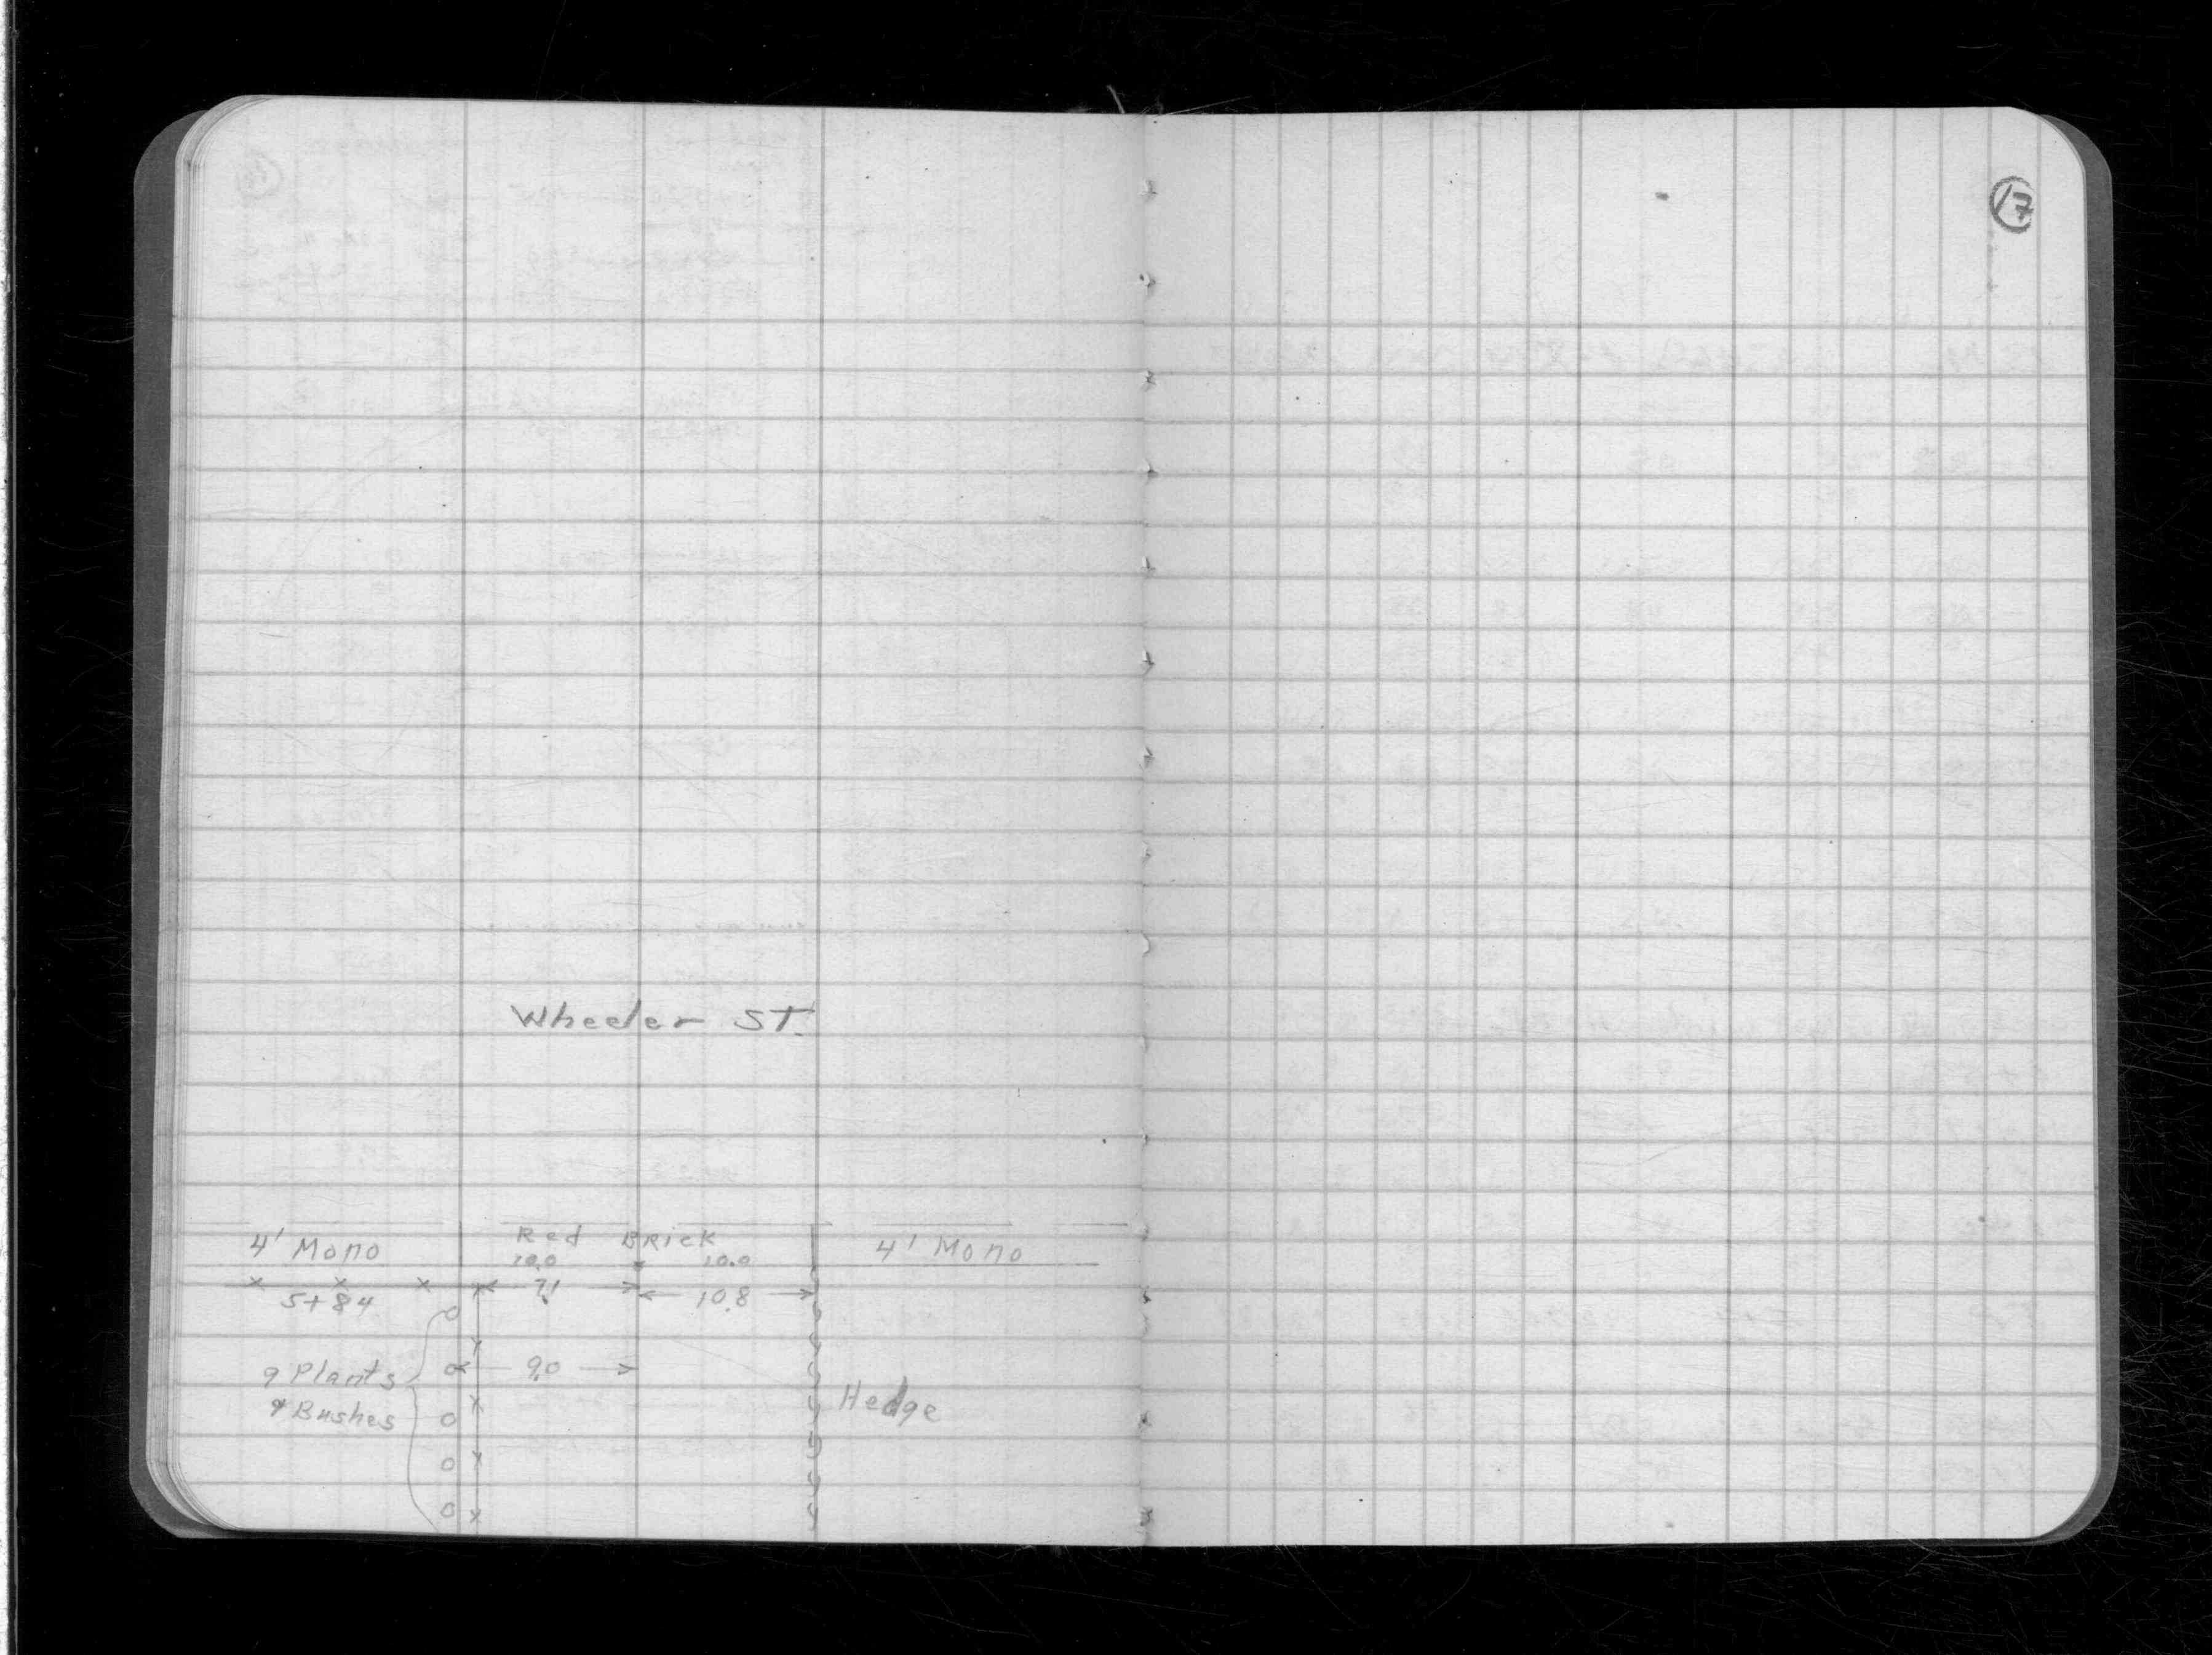 17
Wheeler ST.
4' Mono Red BRICK 4' Mono
10.0 10.0
7.1
5+84 10.8
9.0
9 Plants
& Bushes
Hedge